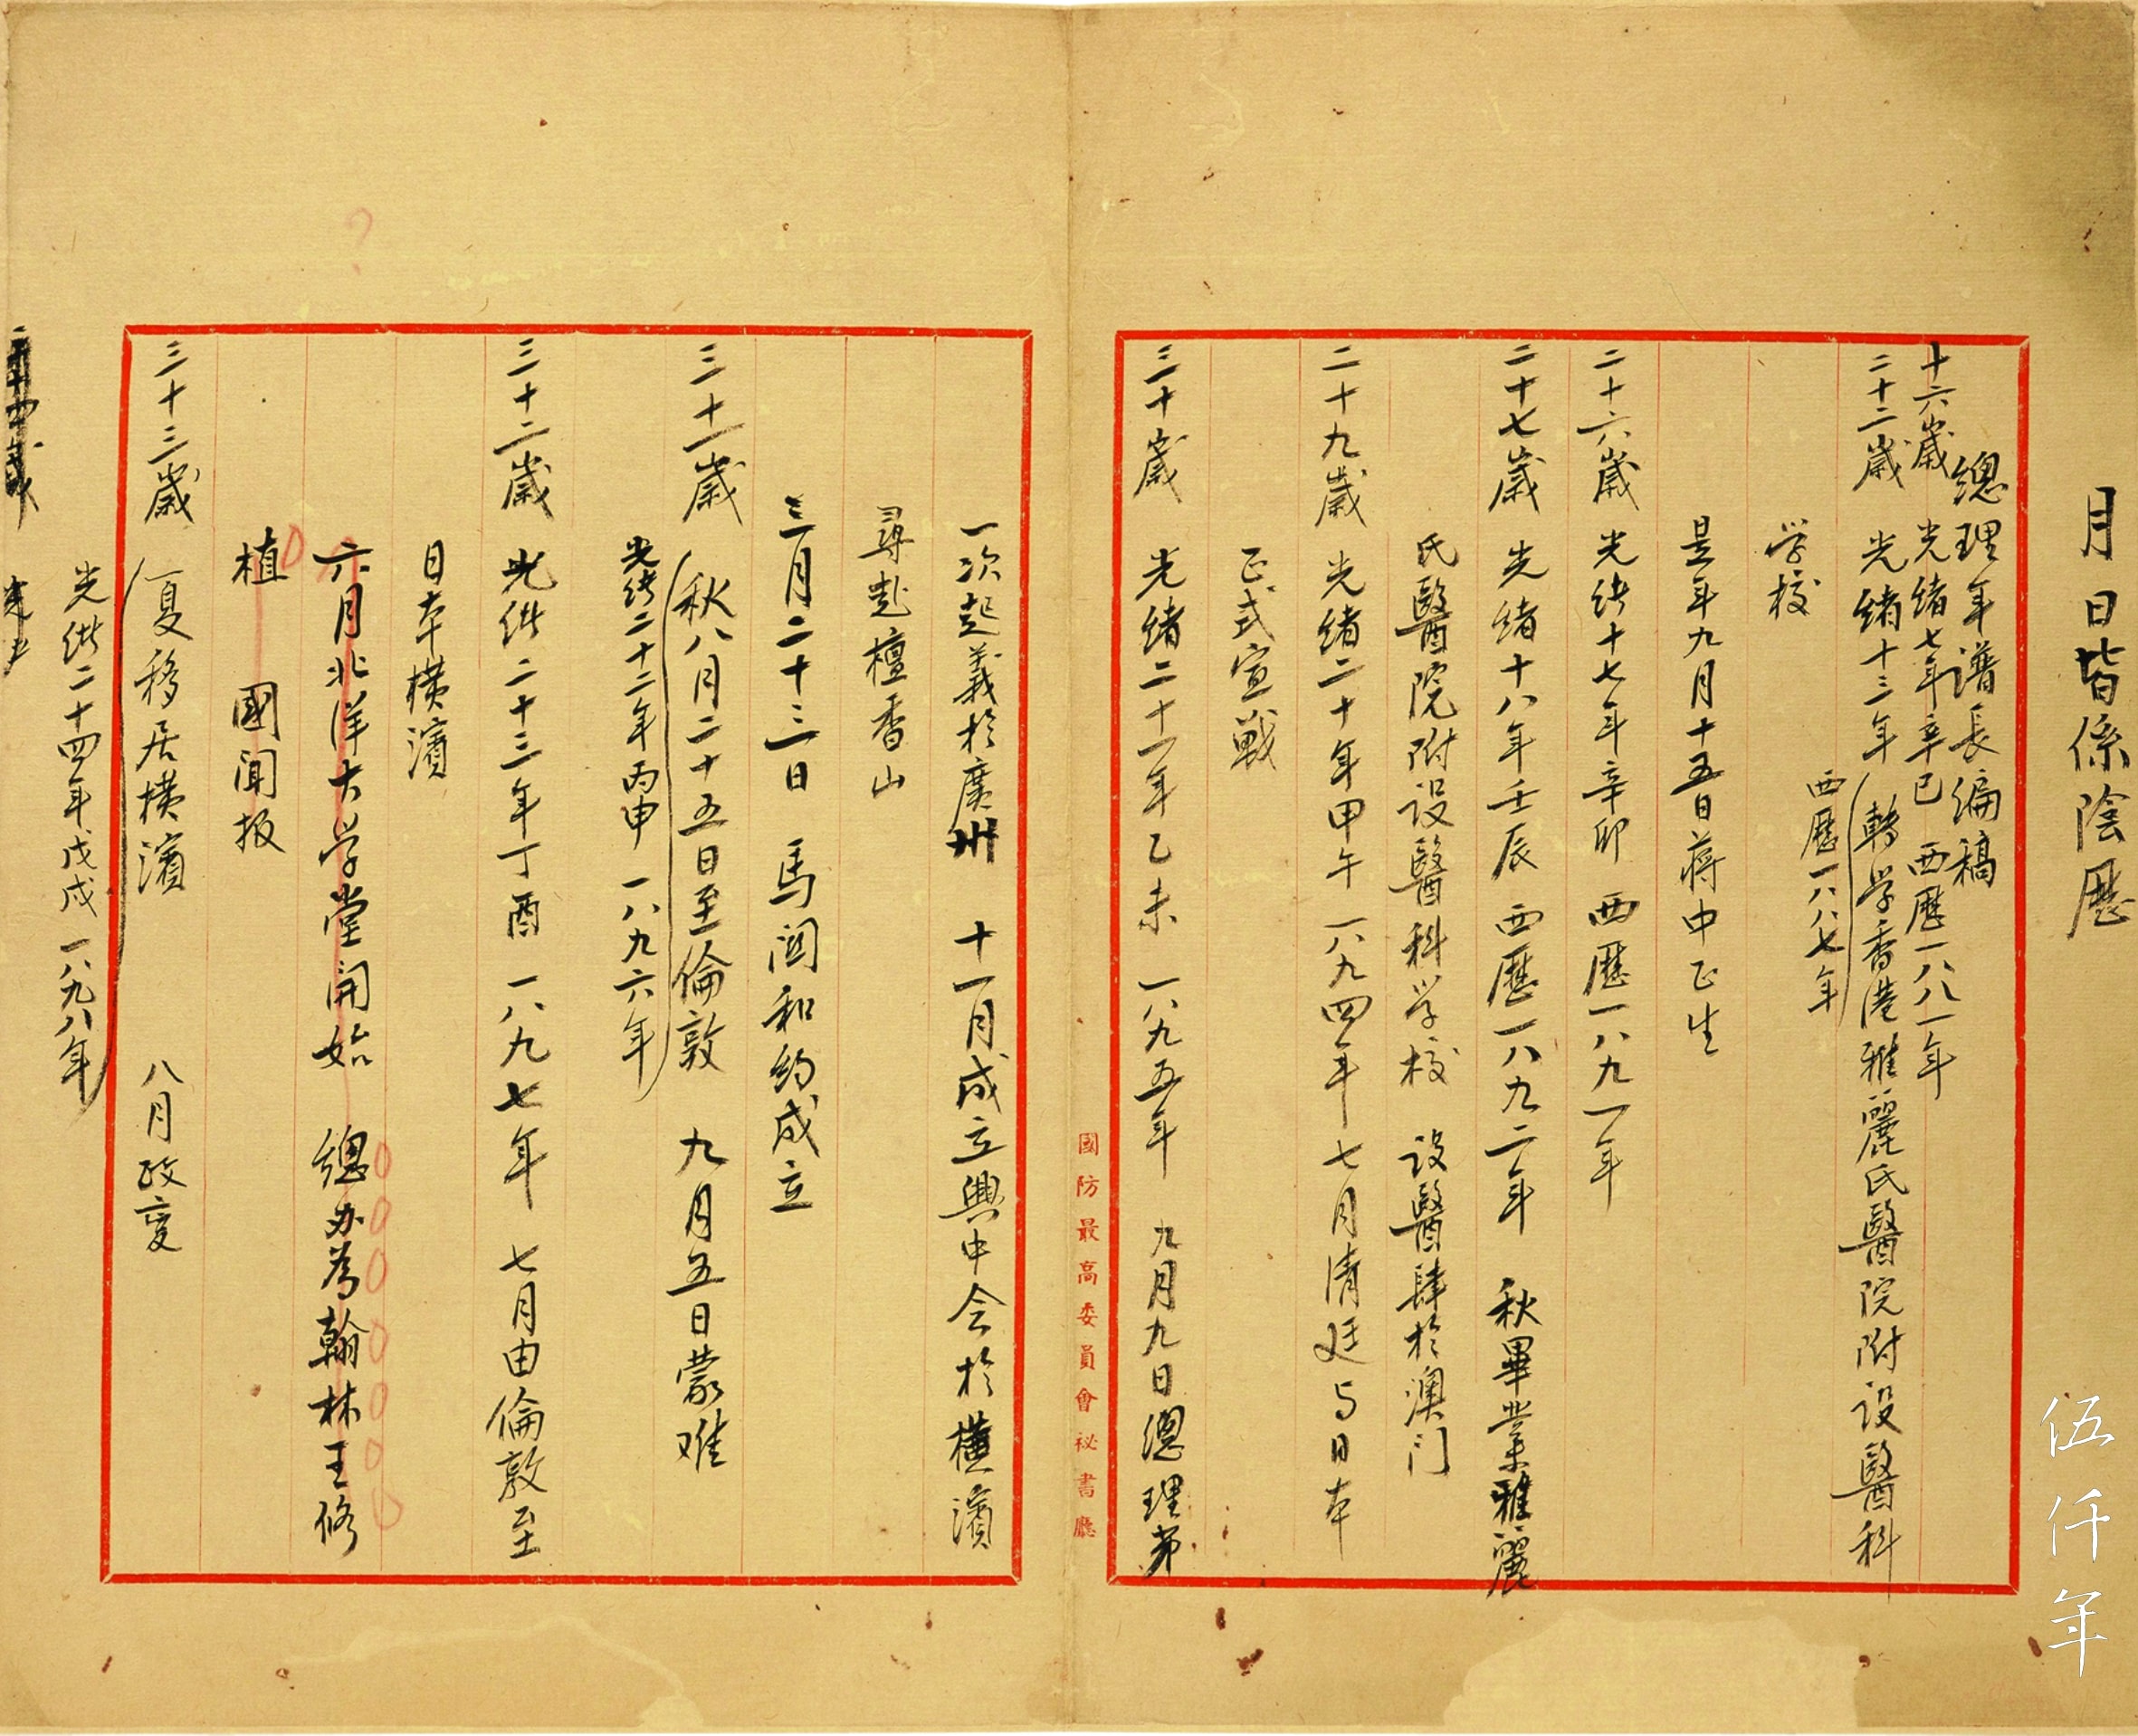 月日皆係陰歷
總理年譜長編稿
十六歲 光緒七年辛巳 西歷一八八一年
二十二歲 光緒十三年 轉学香港雅麗氏醫院附设醫科
西歷一八八七年
学校
是年九月十五日蔣中正生
二十六歲 光緒十七年辛卯 西歷一八九一年
二十七歲 光緒十八年壬辰 西歷一八九二年 秋畢業雅麗
氏醫院附设醫科学校 设醫肆於澳门
二十九歲 光緒二十年甲午 一八九四年七月清廷与日本
正式宣戰
三十歲 光緒二十一年乙未 一八九五年 九月九日總理第
國防最高委員會祕書廳
一次起義於廣州 十一月成立興中会於橫濱
尋赴檀香山
三月二十三日 馬関和約成立
三十一歲 秋八月二十五日至倫敦 九月五日蒙难
光緒二十二年丙申 一八九六年
三十二歲 光緒二十三年丁酉 一八九七年 七月由倫敦至
日本橫濱
六月北洋大学堂開始 總办為翰林王修
植 國聞报
三十三歲 夏移居橫濱 八月政变
光緒二十四年戊戌 一八九八年
伍仟年